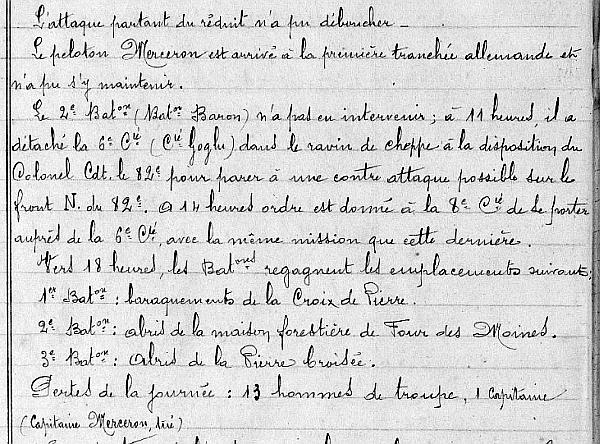 L'attaque partant du réduit n'a pu déboucher _
Le peloton Merceron est arrivé à la première tranchée allemande et
n'a pu s'y maintenir.
Le 2e Baton (Baton Baron) n'a pas eu intervenir ; à 11 heures, il a
détaché la 6e Cie (Cie Goglu) dans le ravin de cheppe à la disposition du
Colonel Cdt. le 82e pour parer à une contre attaque possible sur le
front N. du 82e. A 14 heures ordre est donné à la 8e Cie de se porter
auprès de la 6e Cie, avec la même mission que cette dernière.
Vers 18 heures, les Batons regagnent les emplacements suivants :
1er Baton : baraquements de la Croix de Pierre.
2e Baton : abris de la maison forestière de Four des Moines.
3e Baton : Abris de la Pierre Croisée.
Pertes de la journée : 13 hommes de troupe, 1 Capitaine
(Capitaine Merceron, tué)